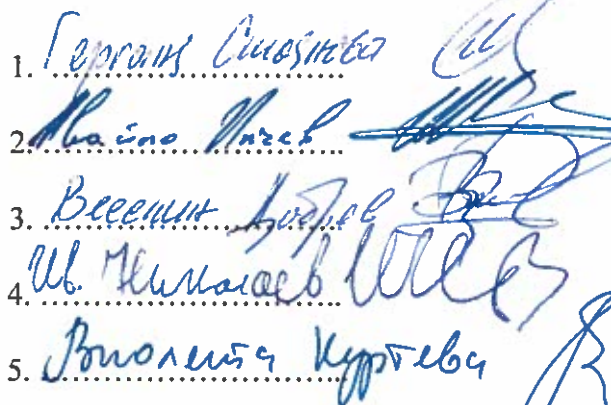 1. Гергана Стоянова
2. Ивайло Илчев
3. Веселин Добрев
4. Ив. Николаев
5. Виолета Куртева